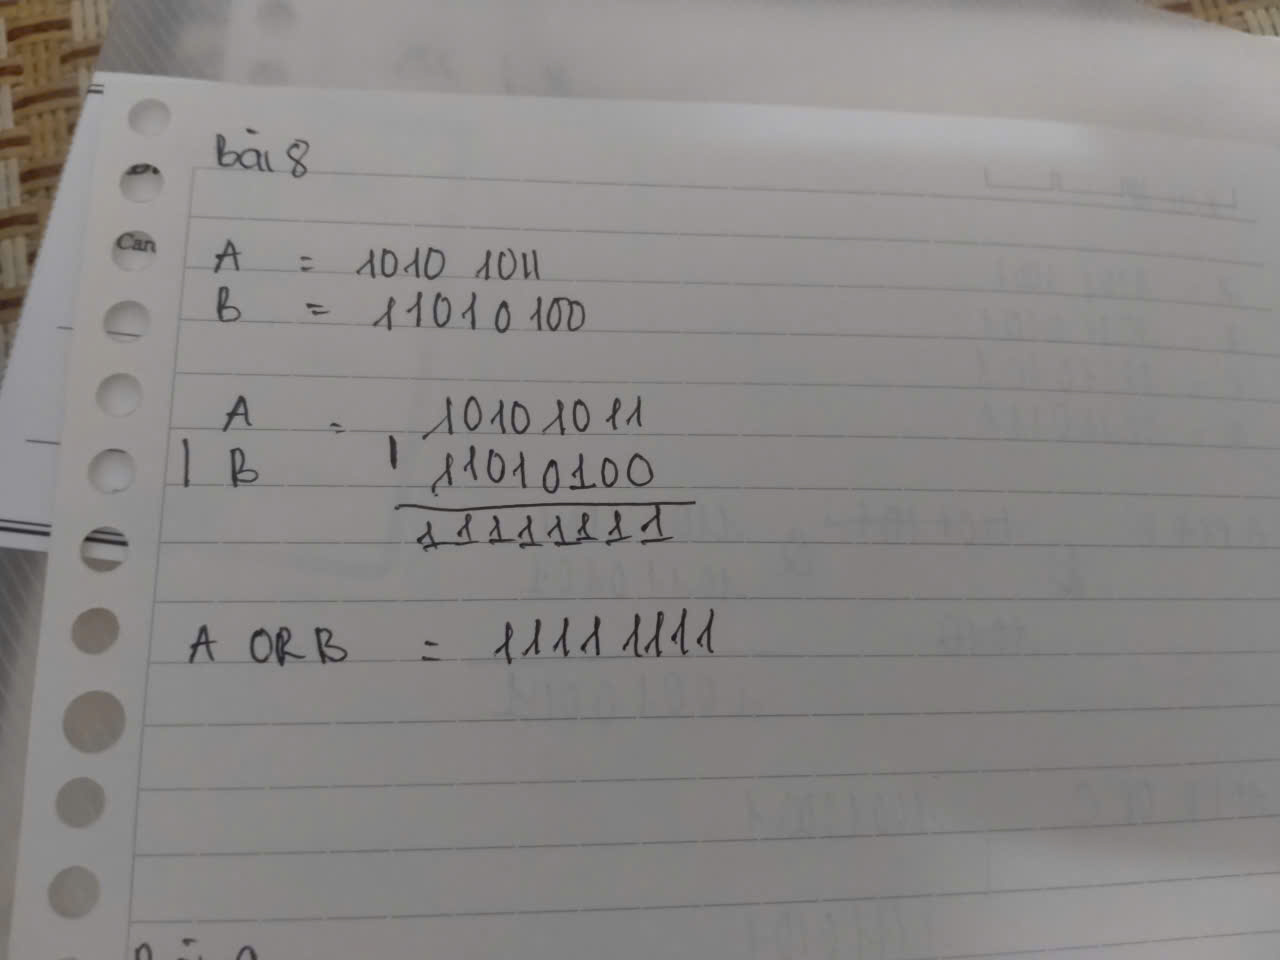 Can
Bài 8
A = 1010 1011
B = 11010100
A = 10101011
| B | 11010100
11111111
A OR B = 1111 1111